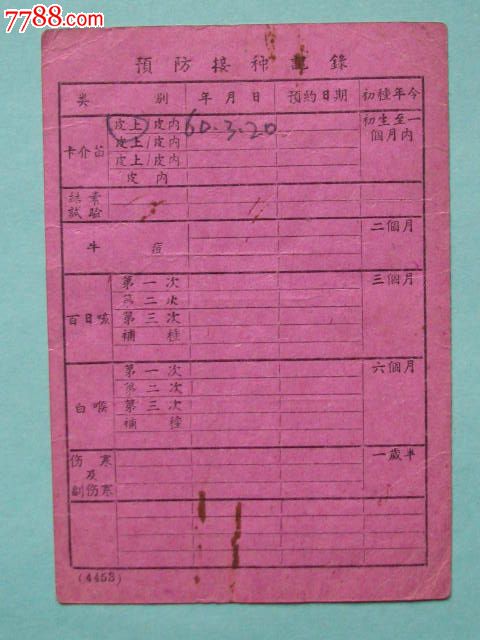 7788.com
预防接种記錄
类别 年月日 預約日期 初種年令
卡介苗 皮上/皮内 60.3.20 初生至一個月内
皮上/皮内
皮上/皮内
皮内
結素試驗
牛痘 二個月
百日咳 第一次 三個月
第二次
第三次
補種
白喉 第一次 六個月
第二次
第三次
補種
伤寒及副伤寒 一歲半
(4453)